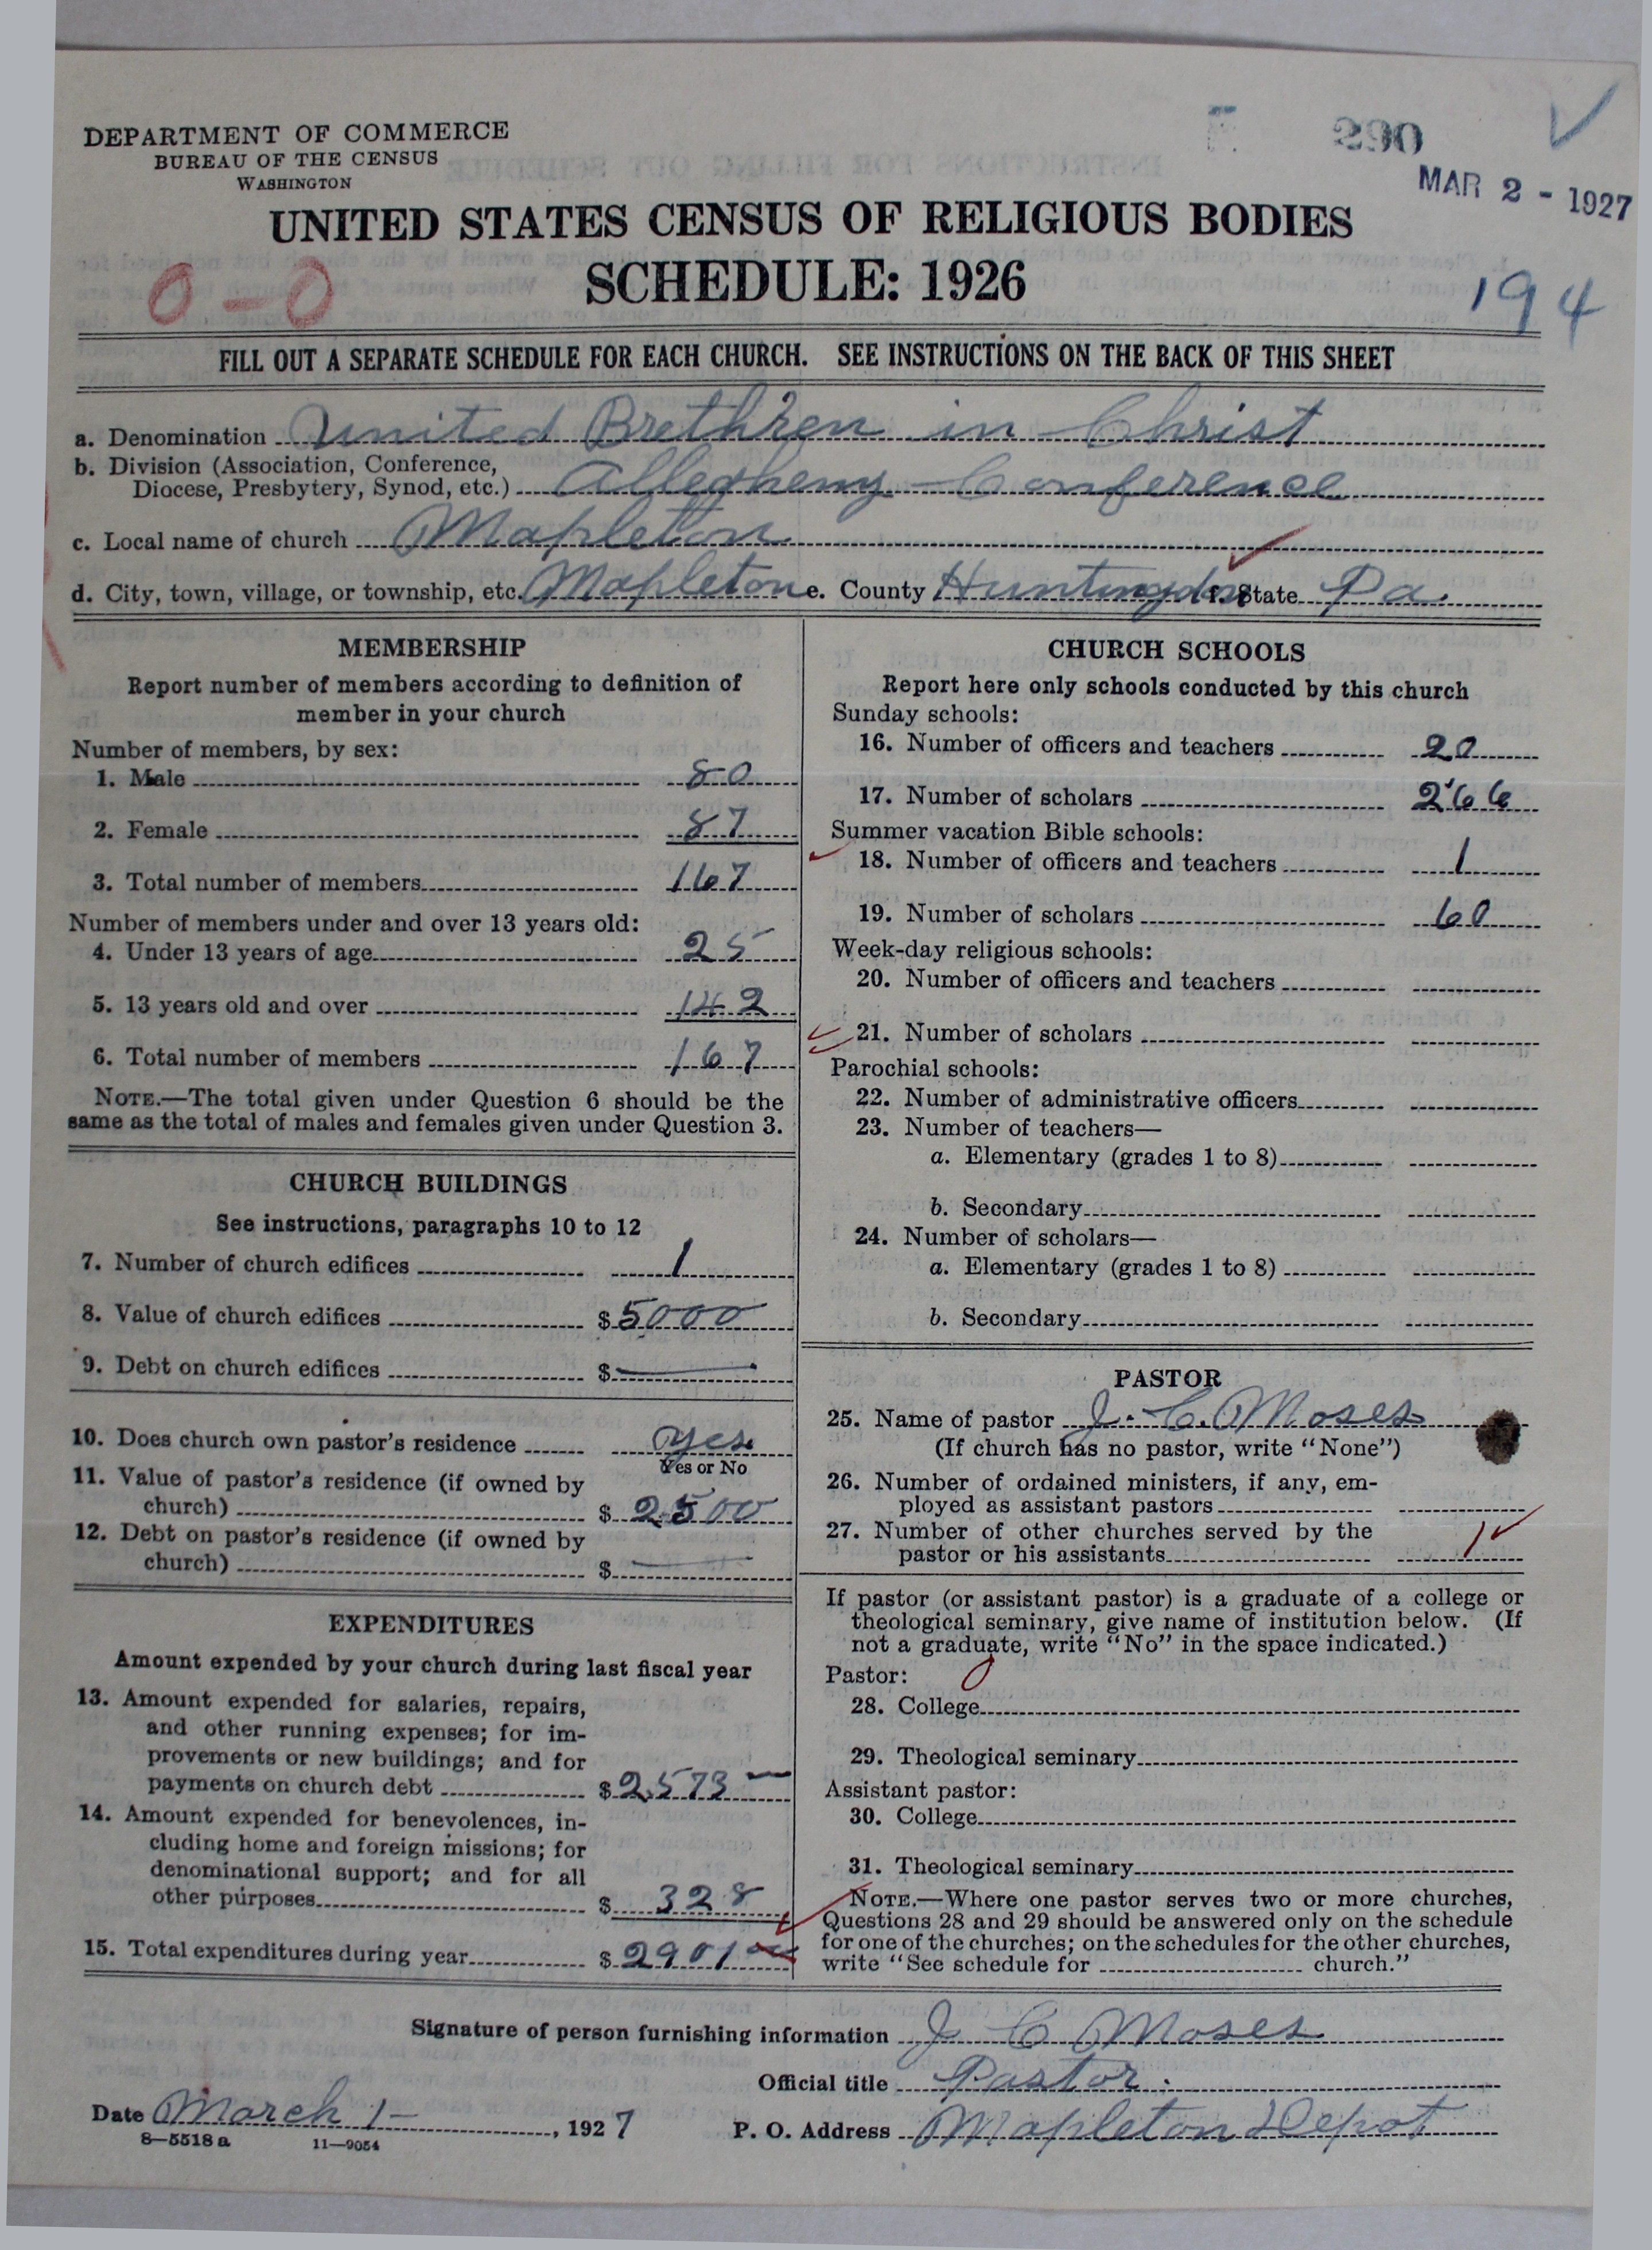 DEPARTMENT OF COMMERCE
BUREAU OF THE CENSUS
WASHINGTON
290
MAR 2 - 1927
UNITED STATES CENSUS OF RELIGIOUS BODIES
SCHEDULE: 1926
0-0
194
FILL OUT A SEPARATE SCHEDULE FOR EACH CHURCH. SEE INSTRUCTIONS ON THE BACK OF THIS SHEET
a. Denomination United Brethren in Christ
b. Division (Association, Conference,
Diocese, Presbytery, Synod, etc.) Allegheny Conference
c. Local name of church Mapleton
d. City, town, village, or township, etc. Mapleton e. County Huntingdon f. State Pa.
MEMBERSHIP
Report number of members according to definition of
member in your church
Number of members, by sex:
1. Male 80
2. Female 87
3. Total number of members 167
Number of members under and over 13 years old:
4. Under 13 years of age 25
5. 13 years old and over 142
6. Total number of members 167
NOTE.—The total given under Question 6 should be the
same as the total of males and females given under Question 3.
CHURCH BUILDINGS
See instructions, paragraphs 10 to 12
7. Number of church edifices 1
8. Value of church edifices $5000
9. Debt on church edifices $ —
10. Does church own pastor's residence yes
Yes or No
11. Value of pastor's residence (if owned by
church) $ 2500
12. Debt on pastor's residence (if owned by
church) $ —
EXPENDITURES
Amount expended by your church during last fiscal year
13. Amount expended for salaries, repairs,
and other running expenses; for im-
provements or new buildings; and for
payments on church debt $2573 —
14. Amount expended for benevolences, in-
cluding home and foreign missions; for
denominational support; and for all
other purposes $ 328
15. Total expenditures during year $2901
CHURCH SCHOOLS
Report here only schools conducted by this church
Sunday schools:
16. Number of officers and teachers 20
17. Number of scholars 266
Summer vacation Bible schools:
18. Number of officers and teachers 1
19. Number of scholars 60
Week-day religious schools:
20. Number of officers and teachers
21. Number of scholars
Parochial schools:
22. Number of administrative officers
23. Number of teachers—
a. Elementary (grades 1 to 8)
b. Secondary
24. Number of scholars—
a. Elementary (grades 1 to 8)
b. Secondary
PASTOR
25. Name of pastor J. C. Moses
(If church has no pastor, write "None")
26. Number of ordained ministers, if any, em-
ployed as assistant pastors
27. Number of other churches served by the
pastor or his assistants 1
If pastor (or assistant pastor) is a graduate of a college or
theological seminary, give name of institution below. (If
not a graduate, write "No" in the space indicated.)
Pastor: 0
28. College
29. Theological seminary
Assistant pastor:
30. College
31. Theological seminary
NOTE.—Where one pastor serves two or more churches,
Questions 28 and 29 should be answered only on the schedule
for one of the churches; on the schedules for the other churches,
write "See schedule for church."
Signature of person furnishing information J C Moses
Official title Pastor.
Date March 1- , 1927 P. O. Address Mapleton Depot
8—5518a 11—9054